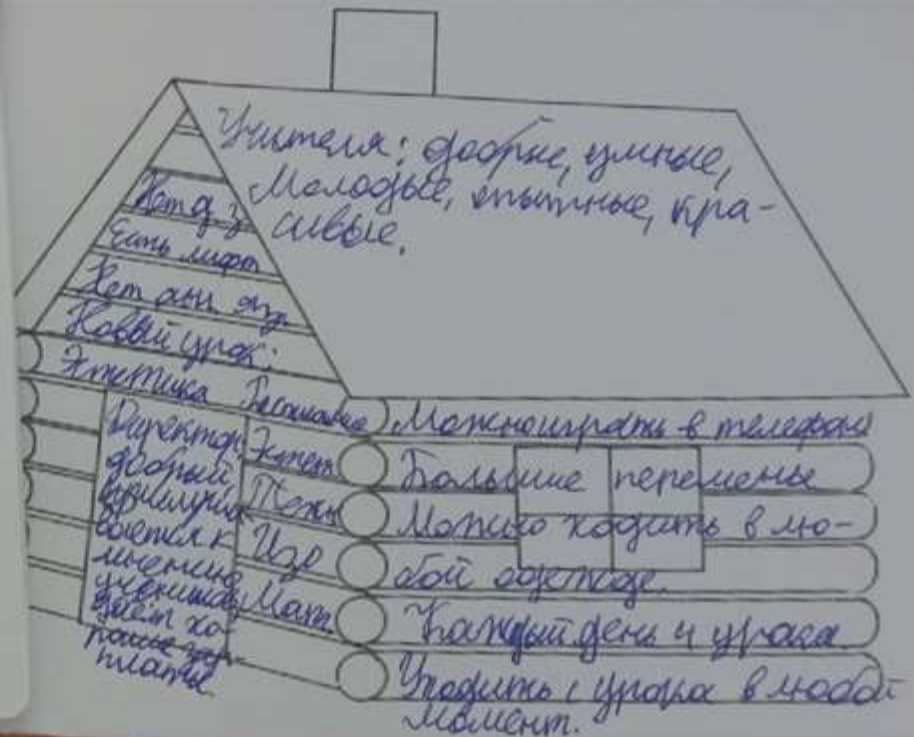 Учителя: добрые, умные,
Молодые, опытные, кра-
сивые.
Нет д. з
Есть лифт
Нет анг. яз.
Новый урок:
Этетика
Директор
добрый
прислуши
вается к
мнению
учеников
даёт хо-
рошие зар-
платы.
Этет
Техн
Изо
Мат.
Можно играть в телефоне
Большие переменые
Можно ходить в лю-
бой одежде.
Каждый день 4 урока
Уходить с урока в любой
момент.